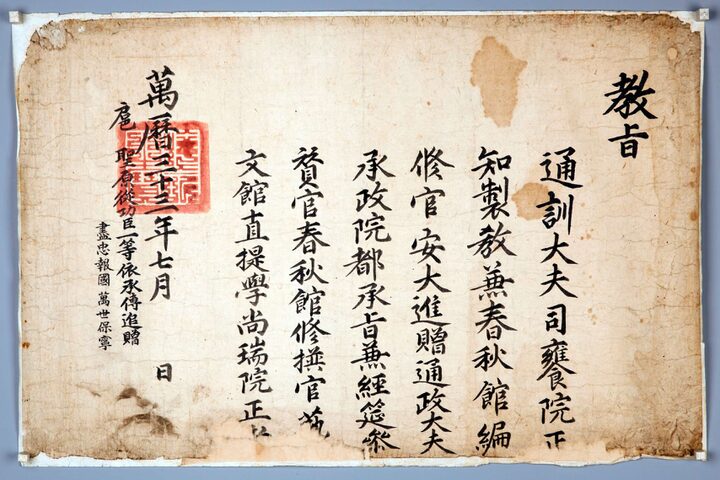 教旨
通訓大夫司饔院正
知製教兼春秋館編
修官安大進贈通政大夫
承政院都承旨兼經筵參
贊官春秋館修撰官兼
文館直提學尚瑞院正
萬曆三十三年七月 日
扈聖原從功臣一等依承傳追贈
盡忠報國萬世保寧